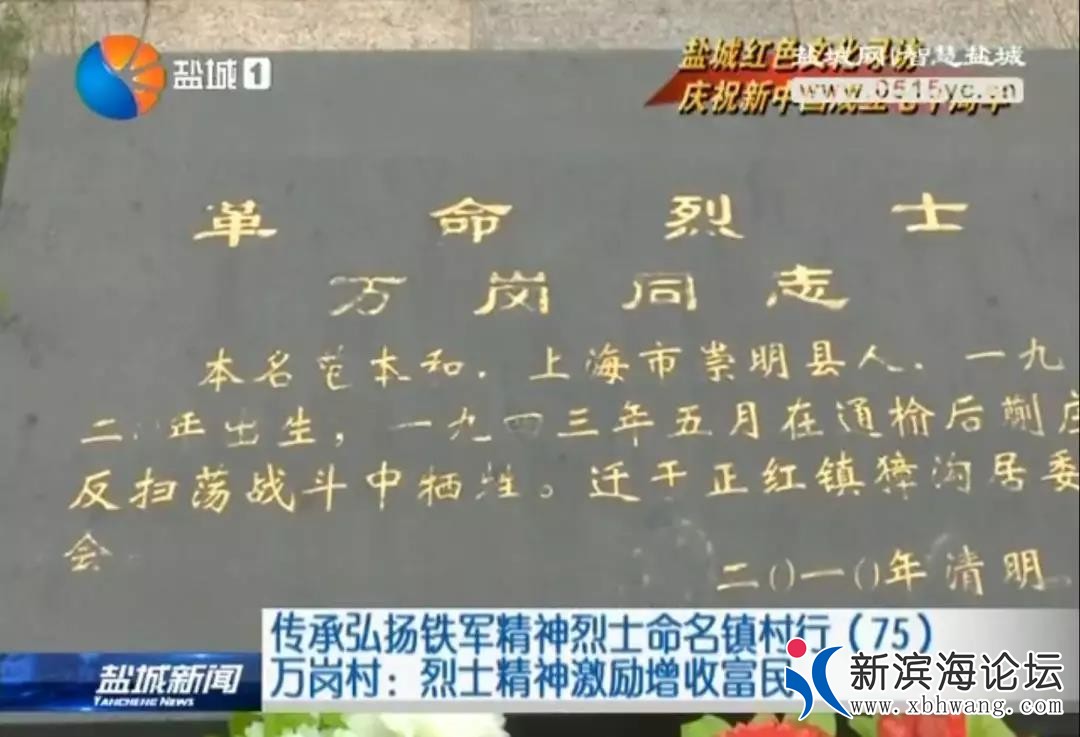 盐城1
盐城网·智慧盐城
盐城红色文化寻访
www.0515yc.cn
庆祝新中国成立七十周年
革命烈士
万岗同志
本名范本和．上海市崇明县人．一九
二 年出生，一九四三年五月在通榆后
反扫荡战斗中牺牲。迁于正红镇獐沟居委
会
二〇一〇年清明
传承弘扬铁军精神烈士命名镇村行（75）
万岗村：烈士精神激励增收富民
盐城新闻
YANCHENG NEWS
新滨海论坛
www.xbhwang.com